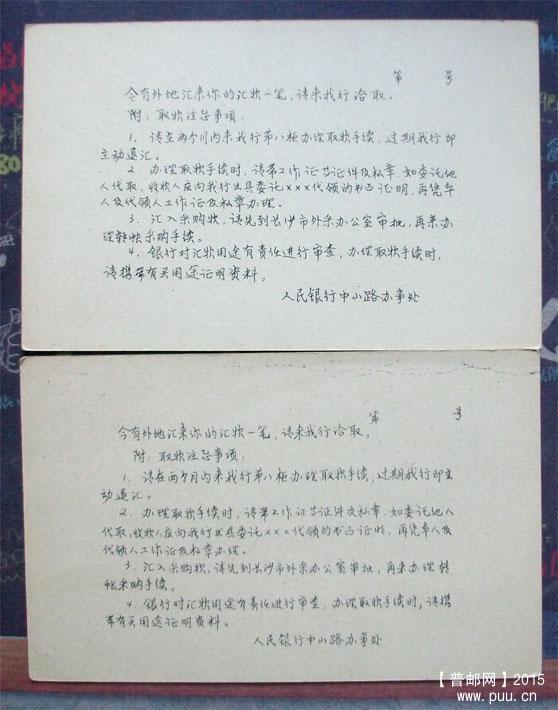 第 号
今有外地汇来你的汇款一笔，请来我行洽取。
附：取款注意事项：
1、请在两个月内来我行第八柜办理取款手续，过期我行即
主动退汇。
2、办理取款手续时，请带工作证等证件及私章，如委托他
人代取，收款人应向我行出具委托×××代领的书面证明，再凭本
人及代领人工作证及私章办理。
3、汇入采购款，请先到长沙市外采办公室审批，再来办
理转帐采购手续。
4、银行对汇款用途有责任进行审查，办理取款手续时，
请携带有关用途证明资料。
人民银行中山路办事处
第 号
今有外地汇来你的汇款一笔，请来我行洽取。
附：取款注意事项：
1、请在两个月内来我行第八柜办理取款手续，过期我行即主
动退汇。
2、办理取款手续时，请带工作证等证件及私章，如委托他人
代取，收款人应向我行出具委托×××代领的书面证明，再凭本人及
代领人工作证及私章办理。
3、汇入采购款，请先到长沙市外采办公室审批，再来办理转
帐采购手续。
4、银行对汇款用途有责任进行审查，办理取款手续时，请携
带有关用途证明资料。
人民银行中山路办事处
【普邮网】2015
www.puu.cn